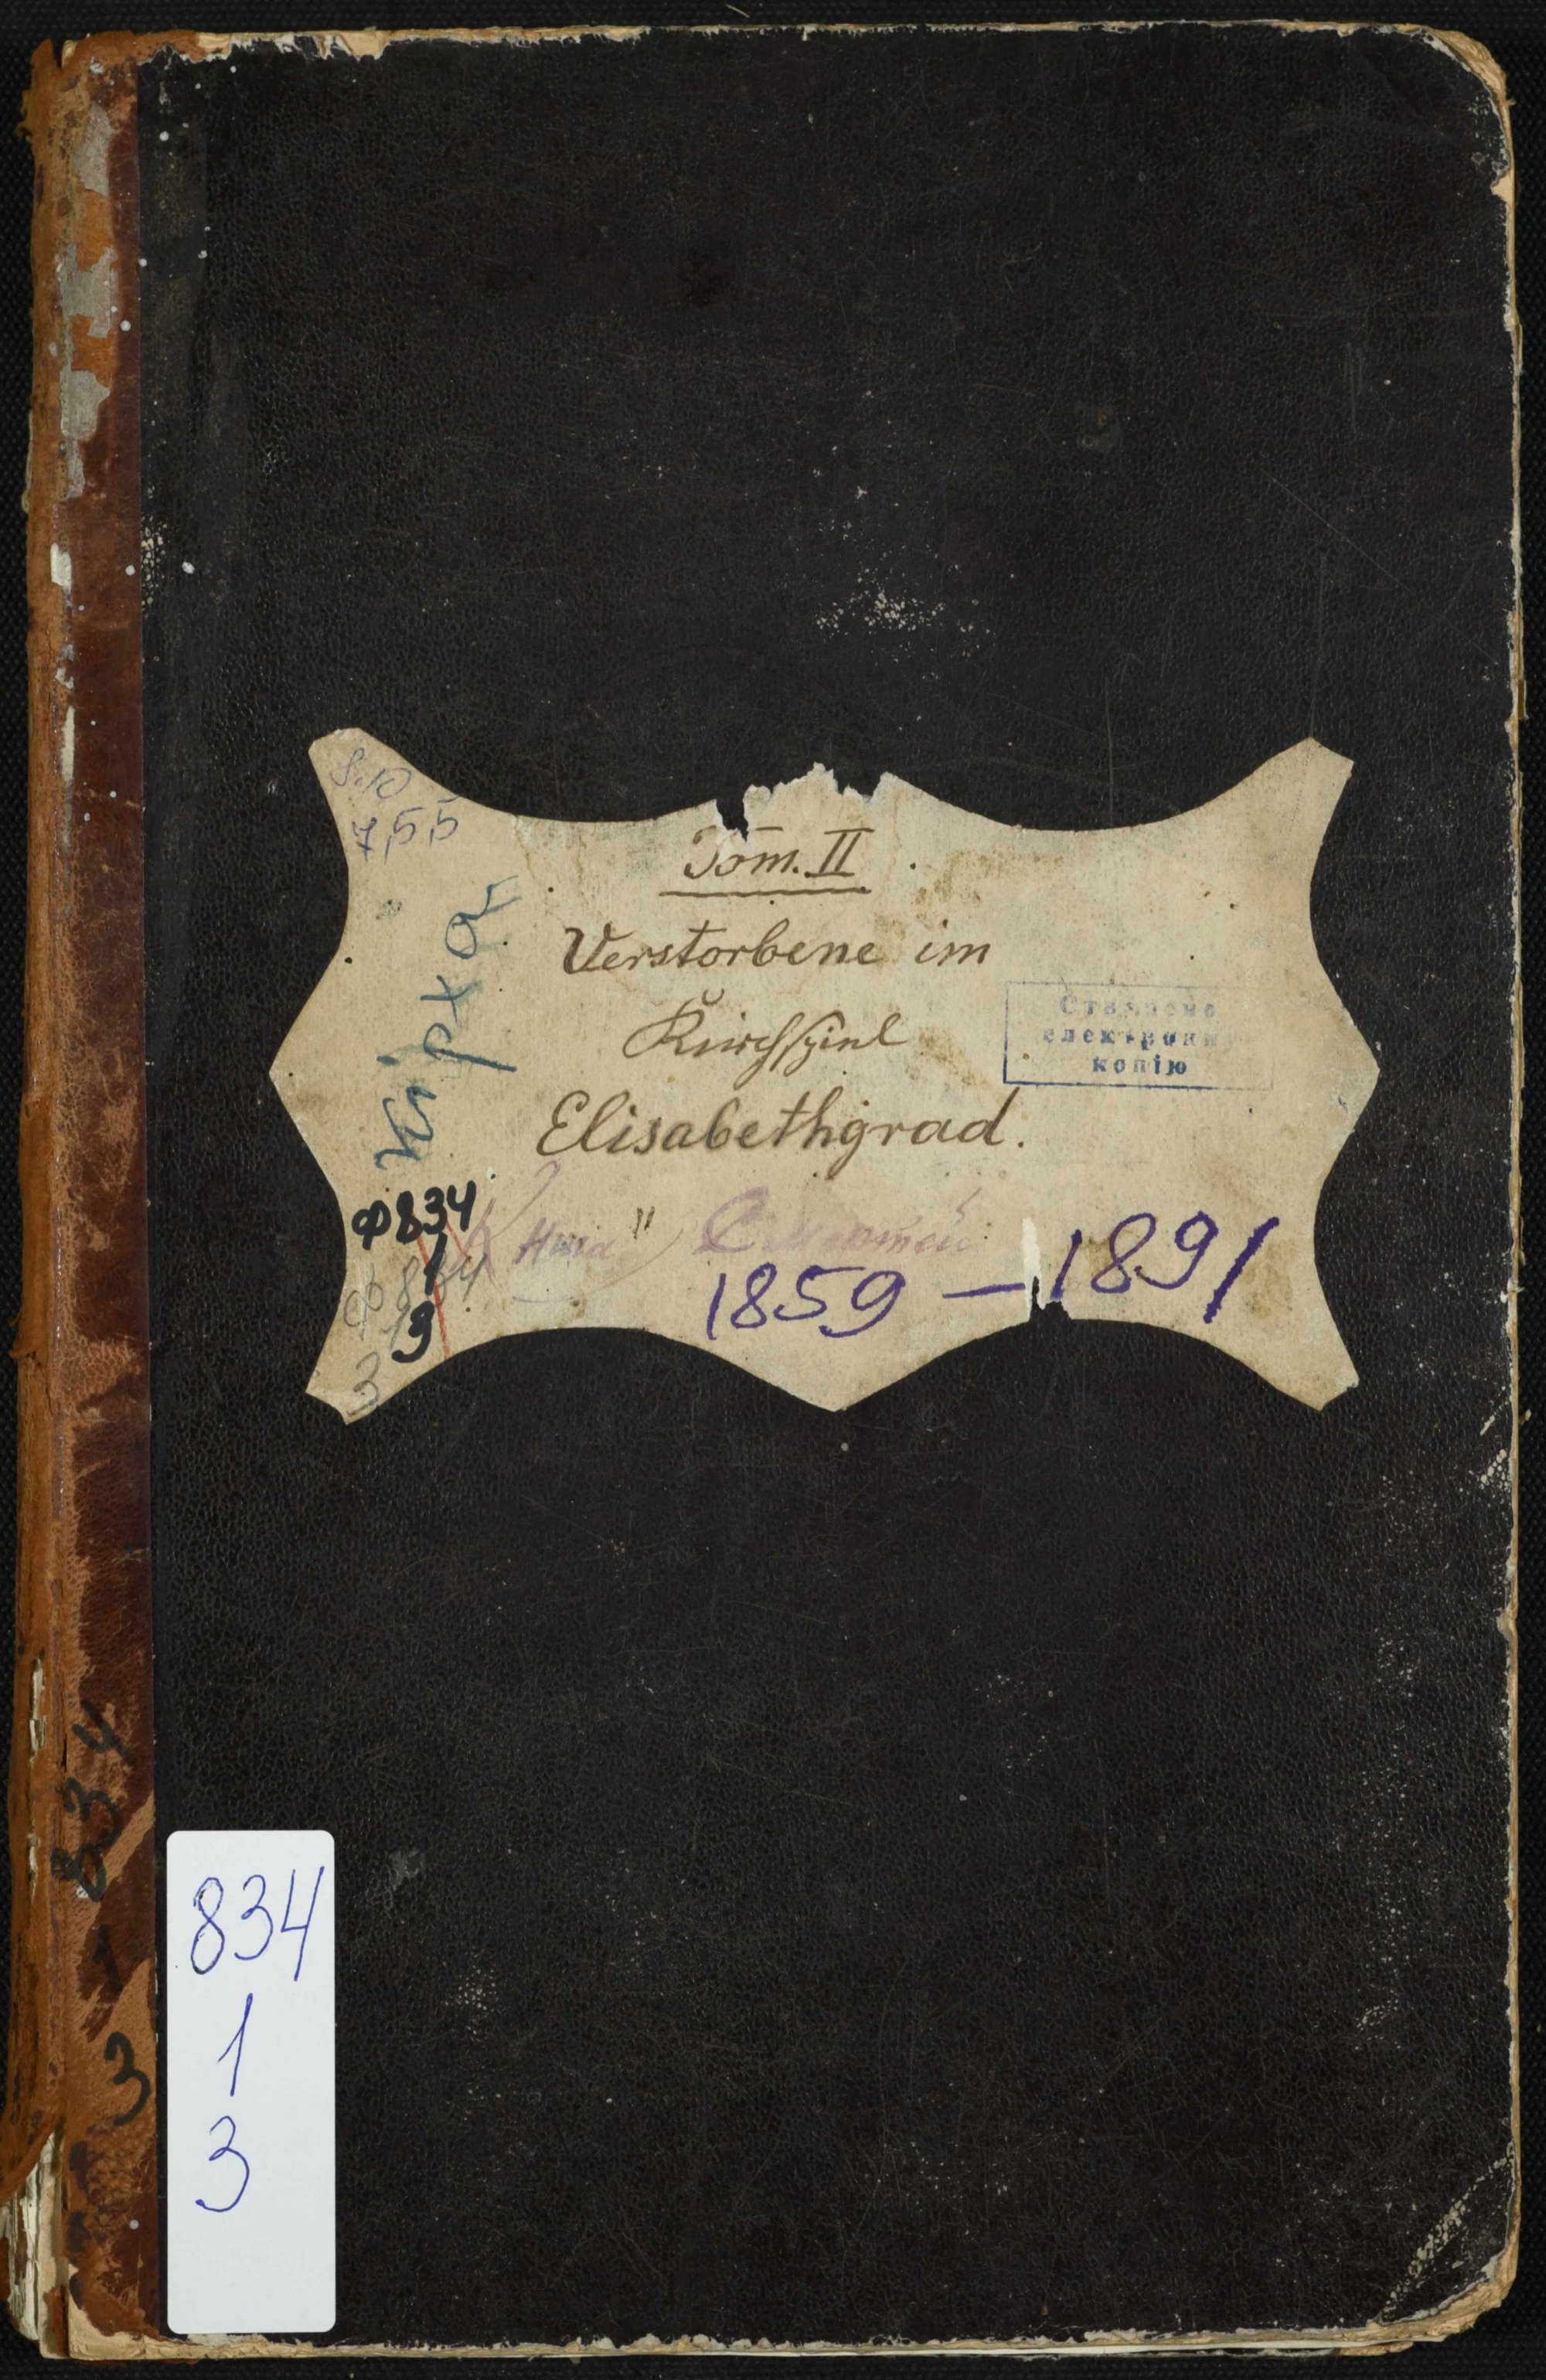 8.10
7,55
Tom. II
Verstorbene im
Kirchspiel
Elisabethgrad.
Кірха
Створено
електронн
копію
Ф834
1
3
Ф834
1
3
Смертей
1859 – 1891
834
1
3
834
1
3